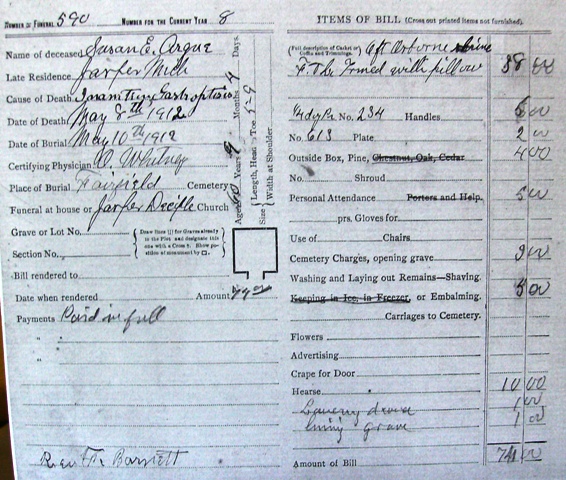 NUMBER OF FUNERAL 590 NUMBER FOR THE CURRENT YEAR 8
Name of deceased Susan E. Argue
Late Residence Jasper Mich
Cause of Death
Date of Death May 8th 1912
Date of Burial May 10th 1912
Certifying Physician O. Whitney
Place of Burial Fairfield Cemetery
Funeral at house or Jasper Church
Age 60 Years 9 Months 4 Days.
Size { Length, Head to Toe 5-9
Width at Shoulder
Grave or Lot No.
Section No.
{ Draw lines [] for Graves already in the Plot and designate this one with a Cross †. Show position of monument by □. }
Bill rendered to
Date when rendered Amount
Payments Paid in full
"
"
Rev Barnett
ITEMS OF BILL (Cross out printed items not furnished).
(Full description of Casket or Coffin and Trimmings) 6ft Osborne
with pillow 38 00
No. 234 Handles 6 00
No. 613 Plate 2 00
Outside Box, Pine, Chestnut, Oak, Cedar 4 00
No. Shroud
Personal Attendance Porters and Help. 5 00
prs. Gloves for
Use of Chairs
Cemetery Charges, opening grave 3 00
Washing and Laying out Remains—Shaving.
Keeping in Ice, in Freezer, or Embalming. 5 00
Carriages to Cemetery.
Flowers
Advertising
Crape for Door
Hearse 10 00
1 00
grave 1 00
Amount of Bill 74 00